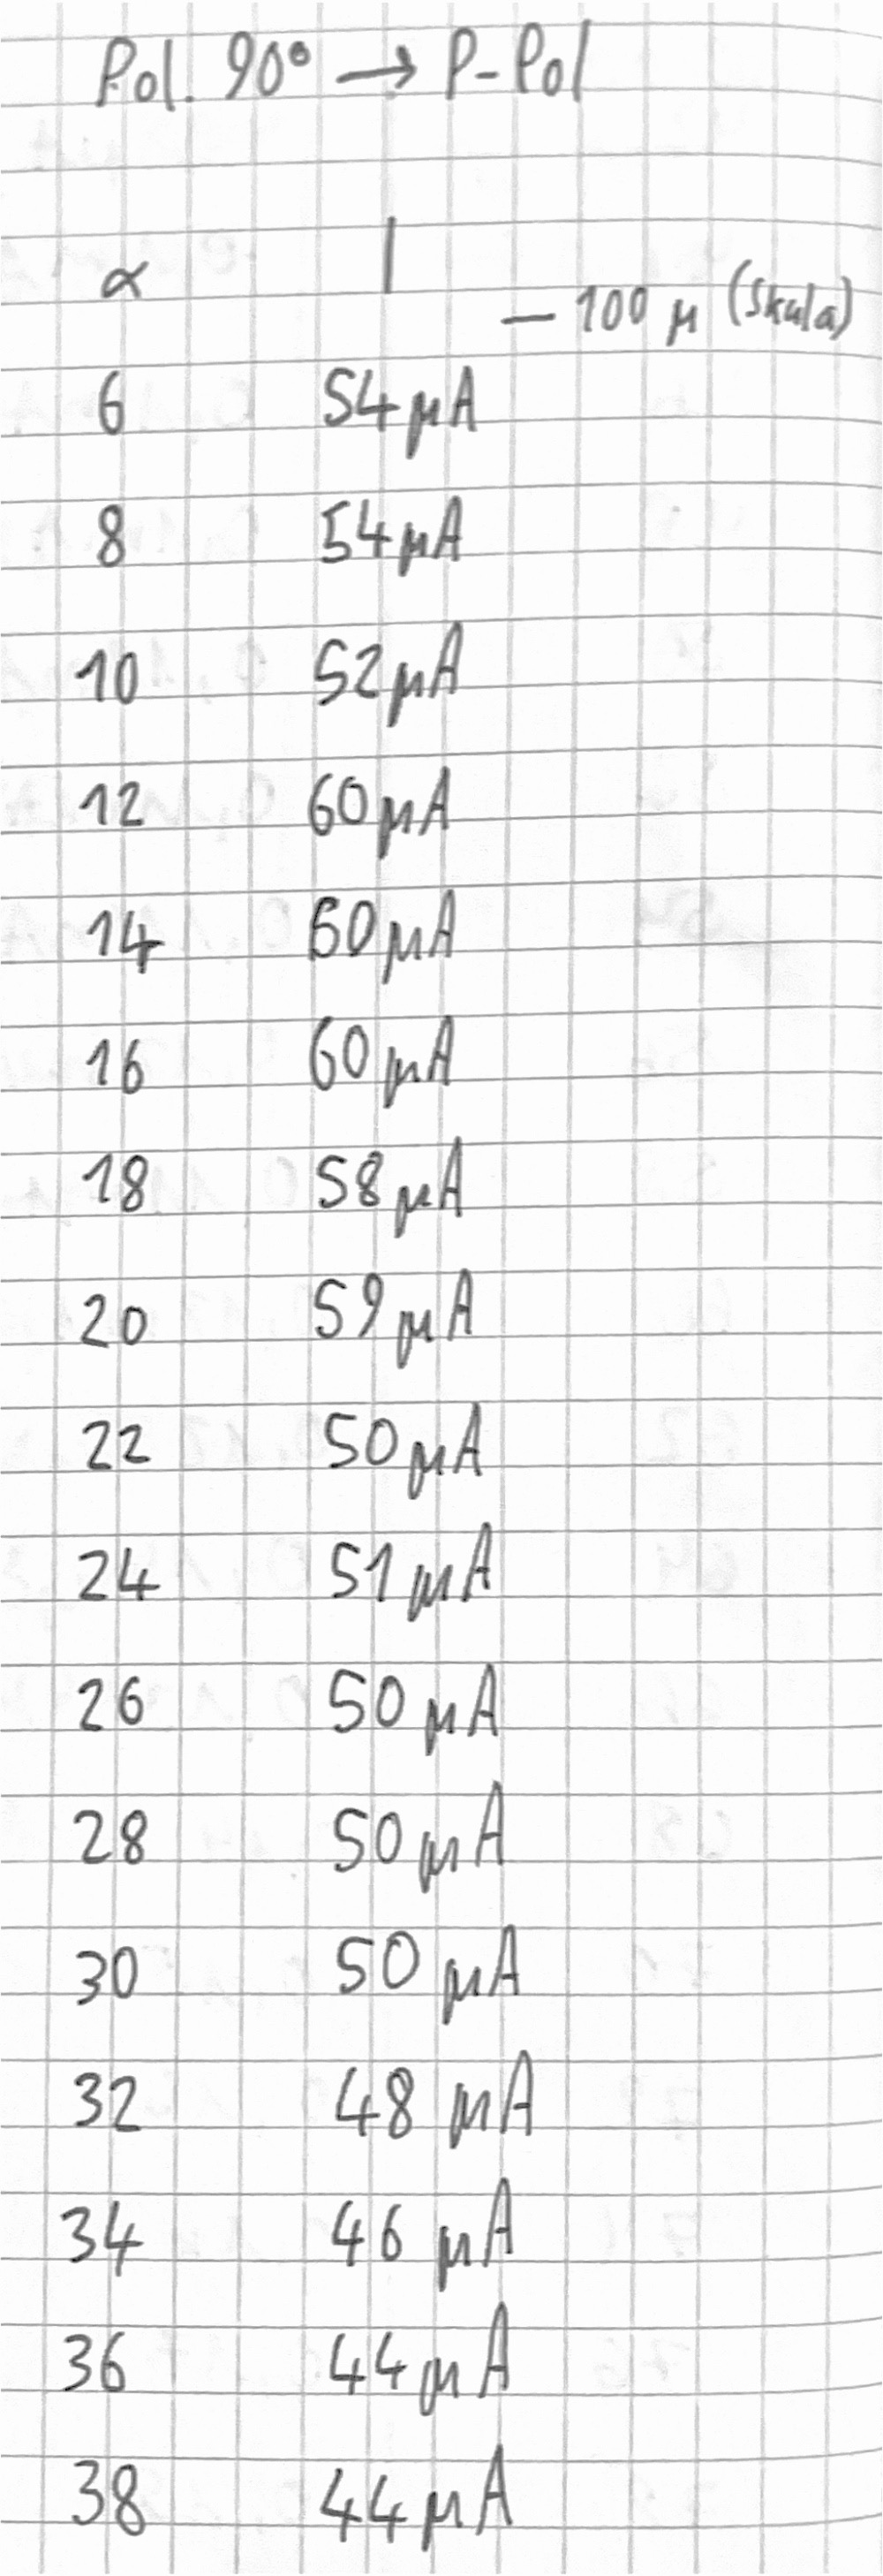 Pol. 90° → P-Pol
α I
— 100 μ (Skala)
6 54 μA
8 54 μA
10 52 μA
12 60 μA
14 60 μA
16 60 μA
18 58 μA
20 59 μA
22 50 μA
24 51 μA
26 50 μA
28 50 μA
30 50 μA
32 48 μA
34 46 μA
36 44 μA
38 44 μA